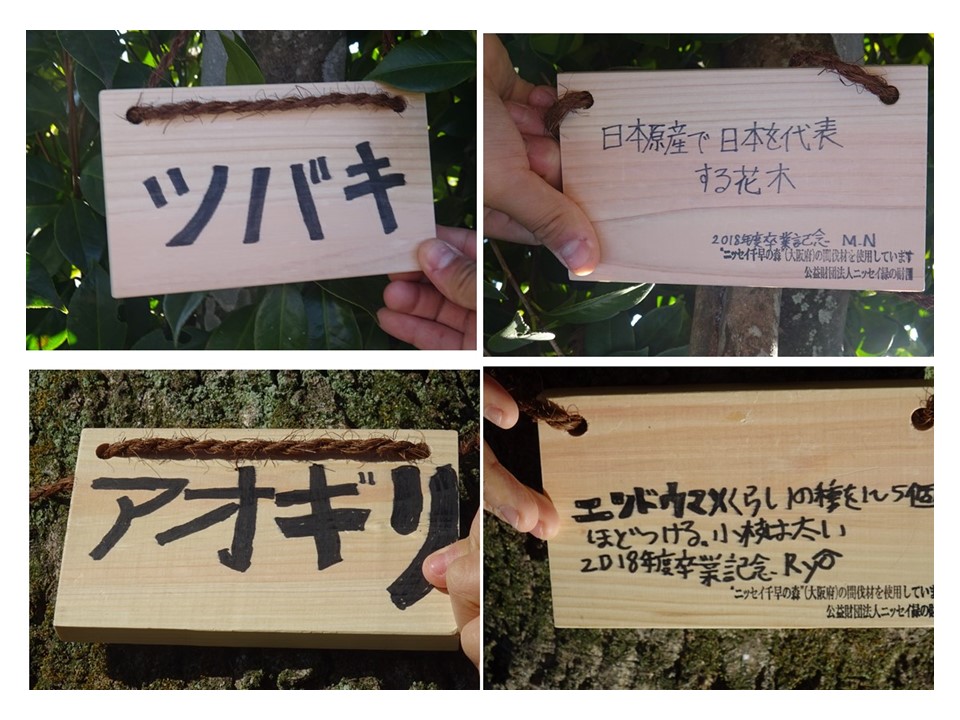 ツバキ
日本原産で日本を代表
する花木
2018年度卒業記念 M.N
"ニッセイ千早の森"(大阪府)の間伐材を使用しています
公益財団法人ニッセイ緑の財団
アオギリ
エンドウマメくらいの種を1~5個
ほどつける。小枝は太い
2018年度卒業記念 Ryo
"ニッセイ千早の森"(大阪府)の間伐材を使用してい
公益財団法人ニッセイ緑の財